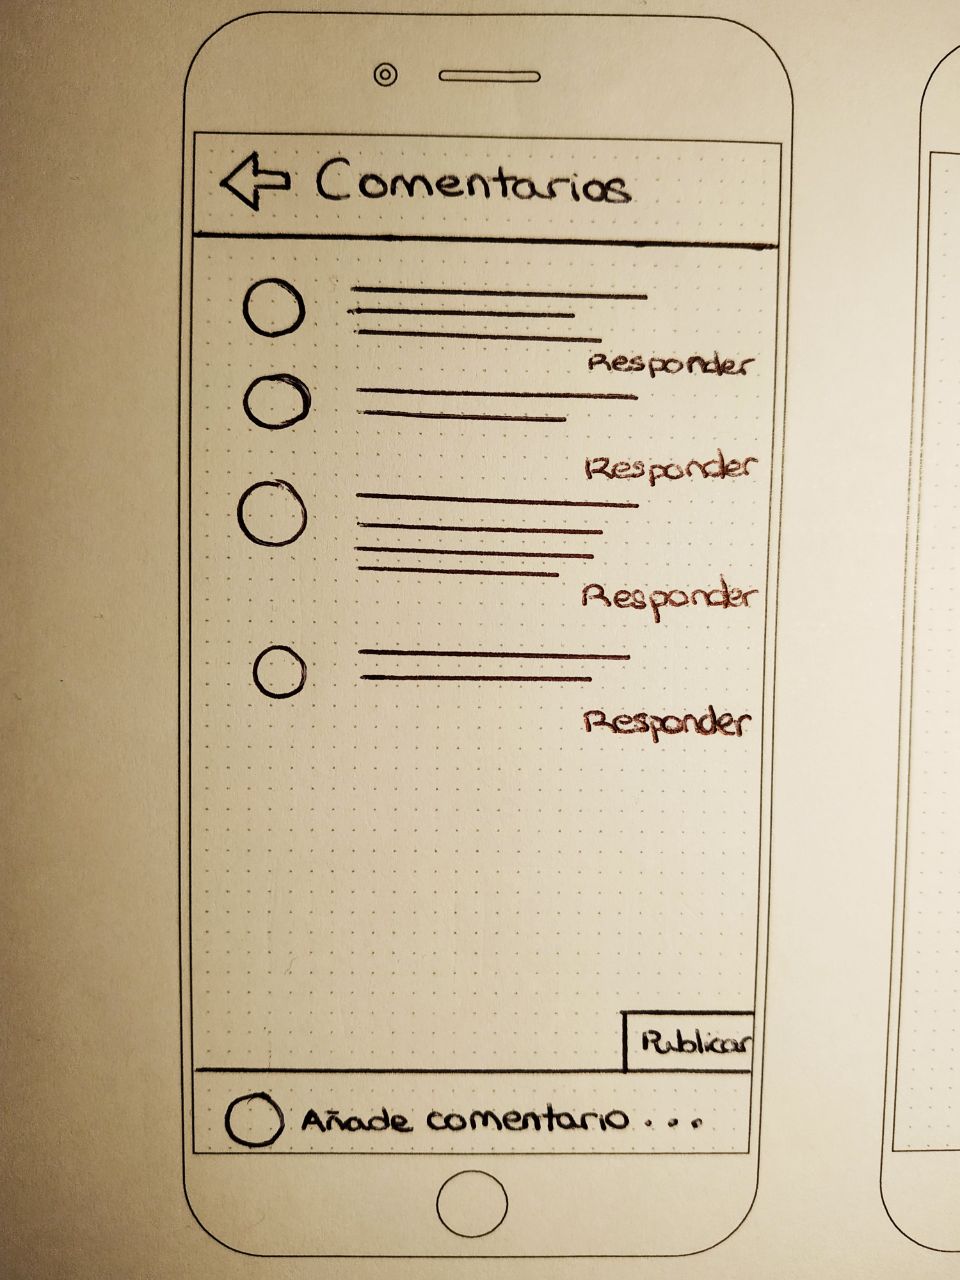 Comentarios
Responder
Responder
Responder
Responder
Publicar
Añade comentario...